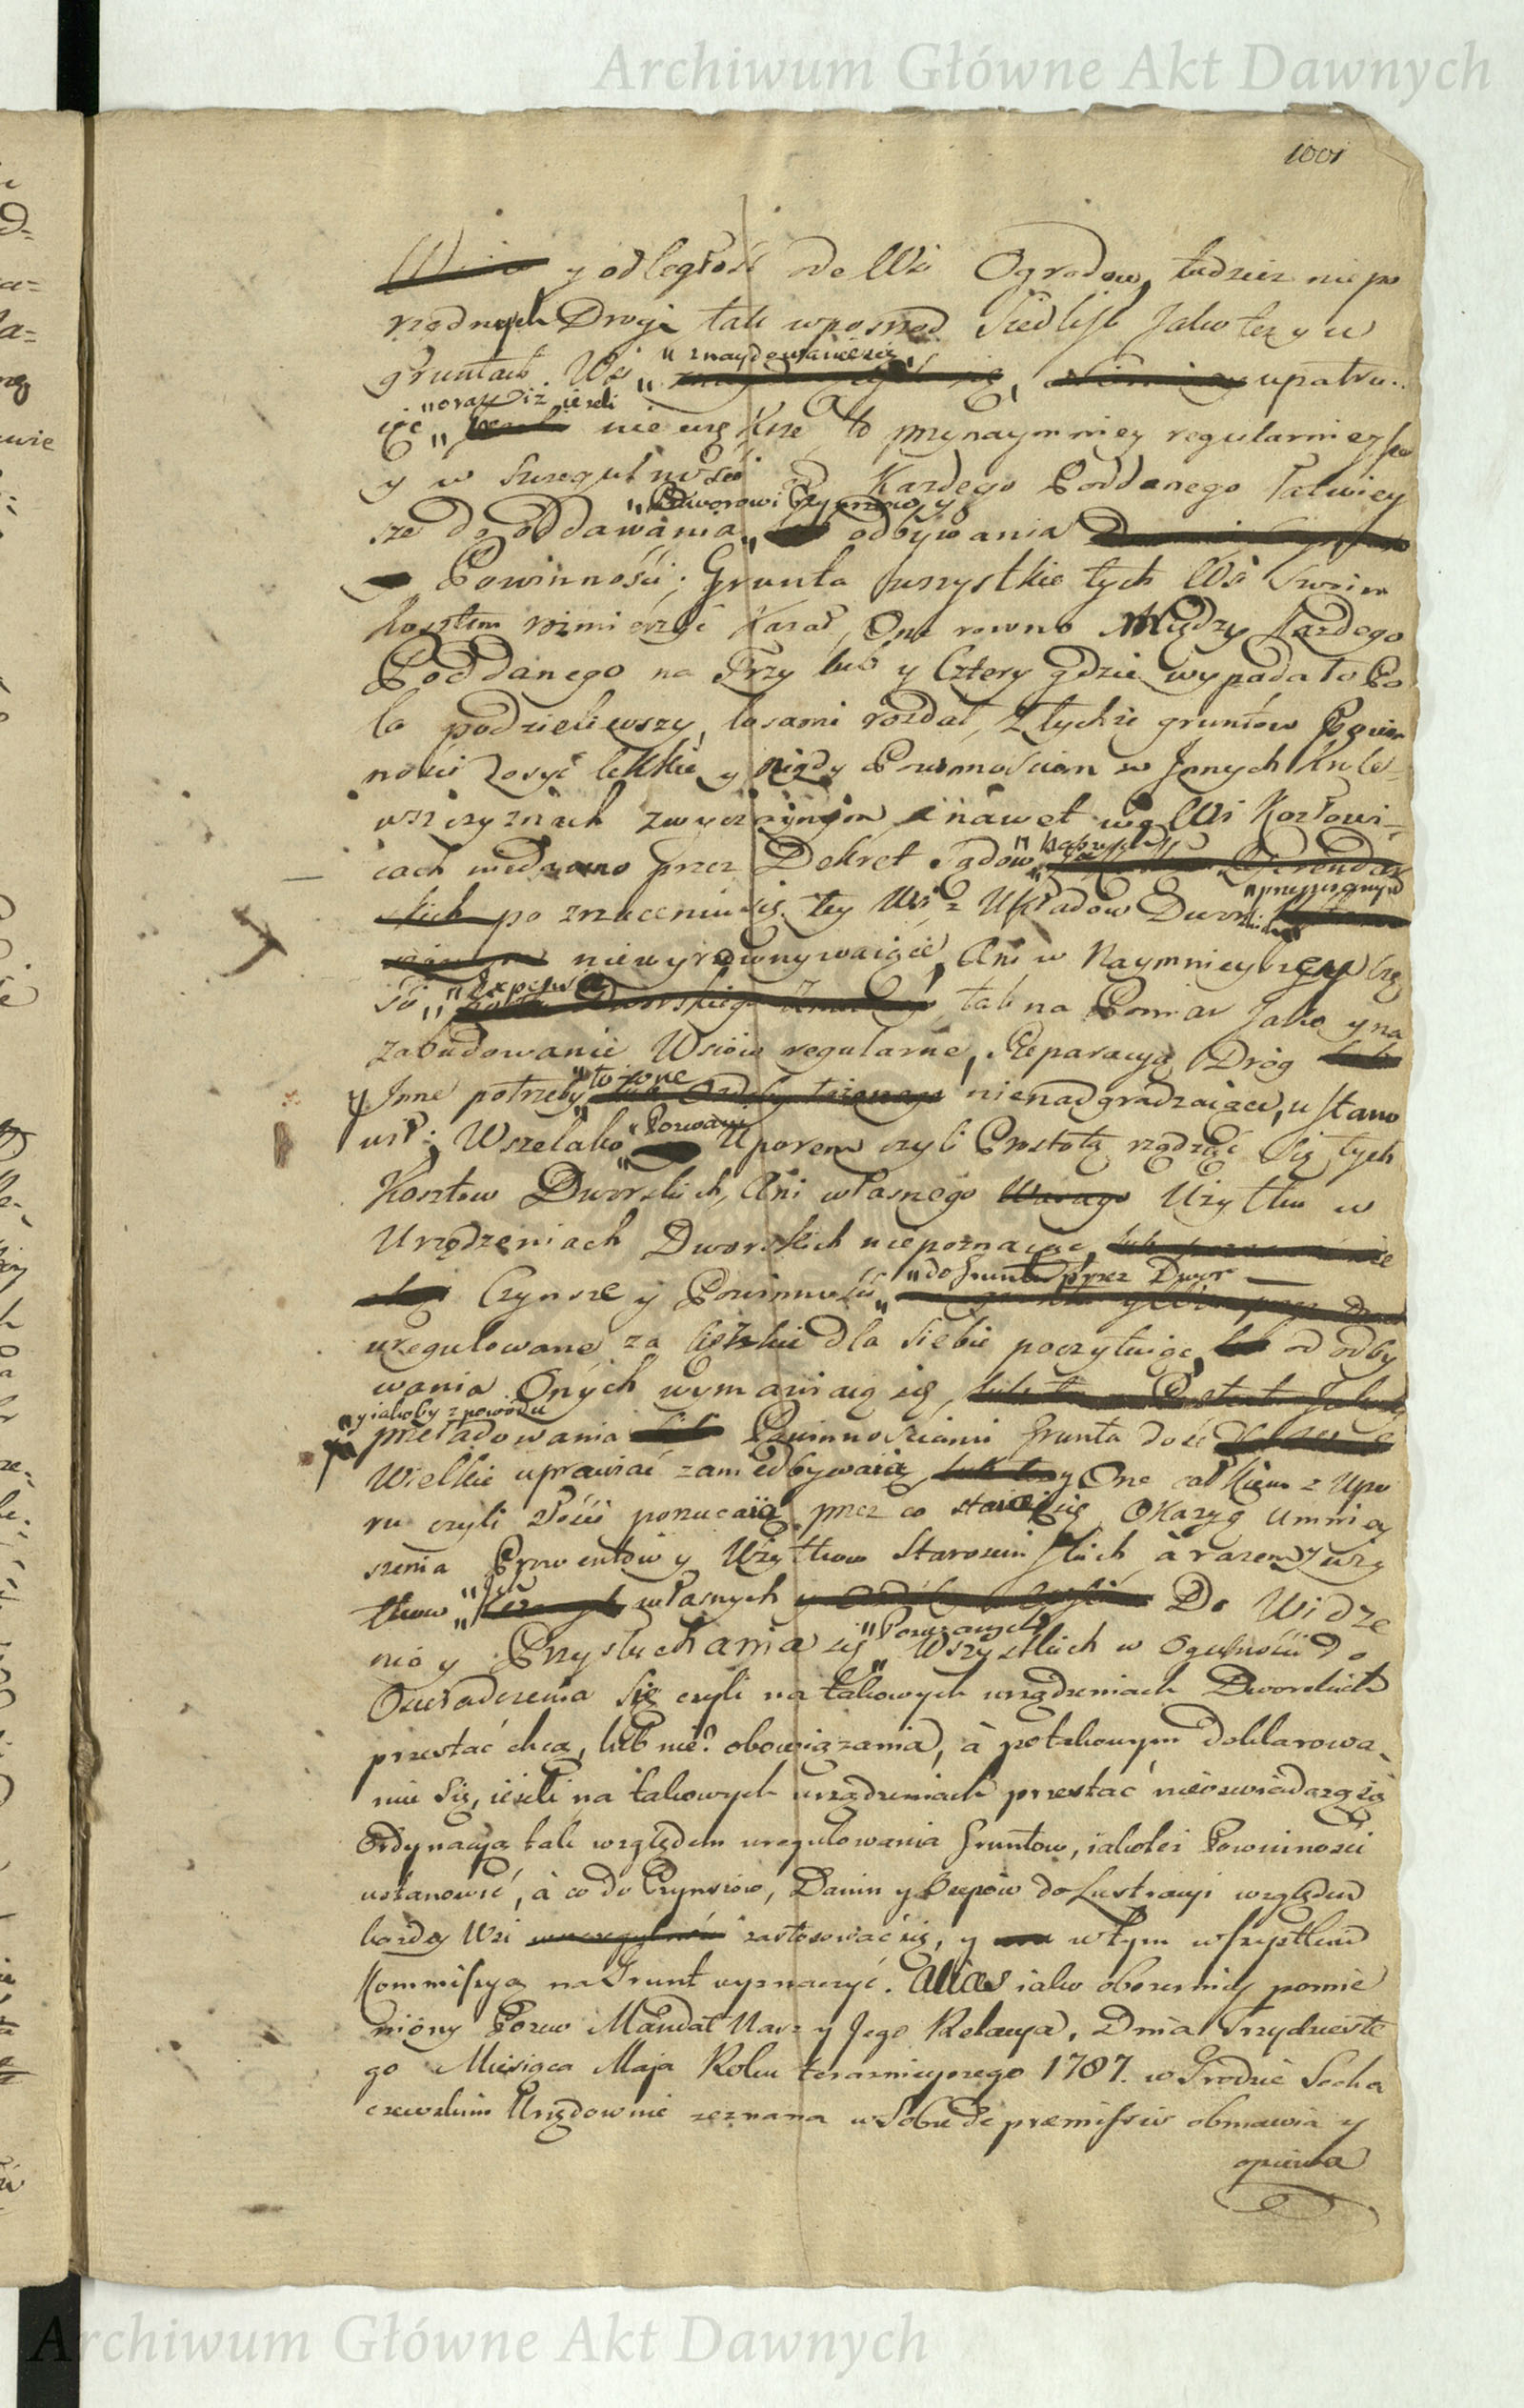 Archiwum Główne Akt Dawnych
1001
y odległość ode Wsi Ogrodow, tudzież niepo
rządnych Drogi tak wpośrzod Siedlisk Jako też y w
"znaydowanie się,
gruntach Wsi upatru..
"oraz iż ieżeli
iąc nie większe to przynaymniey regularnieysze
y w szczegulności Każdego Poddanego łatwiey
"Dworowi Czynszow y
sze do oddawania odbywania
Powinności; Grunta wszystkie tych Wsi Swoim
kosztem rozmierzyć kazał, One rowno Między każdego
Poddanego na Trzy lub y Cztery gdzie wypadało Po
la podzieliwszy, losami rozdał, z tychże gruntow Powin
ności dosyć lekkie y nigdy Powinnościom w Jnnych Krole-
wszczyznach zwyczaynym a nawet we Wsi Kozłowi-
cach niedawno przez Dekret Sądow
"przepisanym
po zrzuceniu się tey Wsi z Układow Dworskich
niewyrownywaiące, Ani w Naymnieyszey Czę
"Expensa
ści tak na Pomiar Jako y na
zabudowanie Wsiow regularne, Reparacyą Drog
"łożone
y Jnne potrzeby nienadgradzaiące, ustano
"Pozwani
wił; Wszelako Uporem czyli Prostotą rządząc się tych
Kosztow Dworskich, Ani własnego Użytku w
Urządzeniach Dworskich niepoznaiąc,
"do Gruntu przez Dwor
Czynsze y Powinności
uregulowane za ciężkie dla siebie poczytuiąc, od odby
wania Onych wymawiaią się,
"y iakoby z powodu
przeładowania Powinnościami grunta dość
Wielkie uprawiać zaniedbywaią, y One całkiem z Upo
ru czyli złości porzucaią przez co staią się Okazyą umniey
szenia Prowentow y Użytkow Starościńskich, à razem y uży
tkow własnych Do Widze
"Pozwanych
nia y Przysłuchania się Wszystkich w Ogulności do
Oświadczenia się czyli na takowych urządzeniach Dworskich
przestać chcą, lub nie? obowiązania, à potakowym deklarowa-
niu się, ieżeli na takowych urządzeniach przestać nieoświadczą się
Ordynacyą tak względem uregulowania Gruntow, iakoteż Powinności
ustanowić, à co do Czynszow, Danin y Osepow do Lustracyi względem
każdey Wsi zastosować się, y w tym wszystkim
Kommissyą na Grunt wyznaczyć. Alias iako obszerniey pomie
niony Pozew Mandat Nasz y Jego Relacya, Dnia Trzydzieste
go Miesiąca Maja Roku teraznieyszego 1787. w Grodzie Socha
czewskim Urzędownie zeznana w Sobie de præmissis obmawia y
opiewa
Archiwum Główne Akt Dawnych